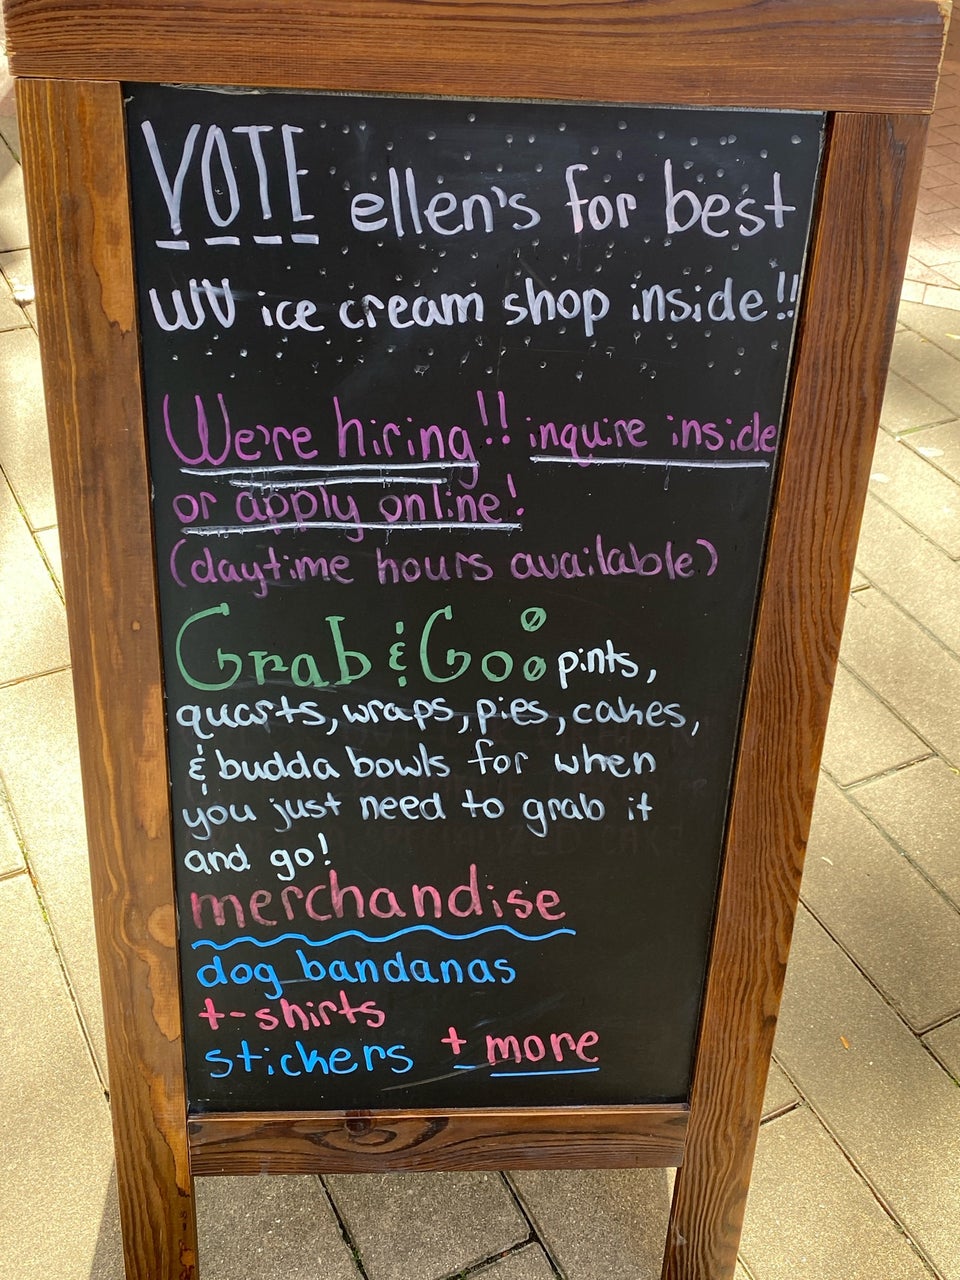 VOTE ellen's for best
WV ice cream shop inside!!
We're hiring!! inquire inside
or apply online!
(daytime hours available)
Grab & Go: pints,
quarts, wraps, pies, cakes,
& budda bowls for when
you just need to grab it
and go!
merchandise
dog bandanas
t-shirts
stickers + more